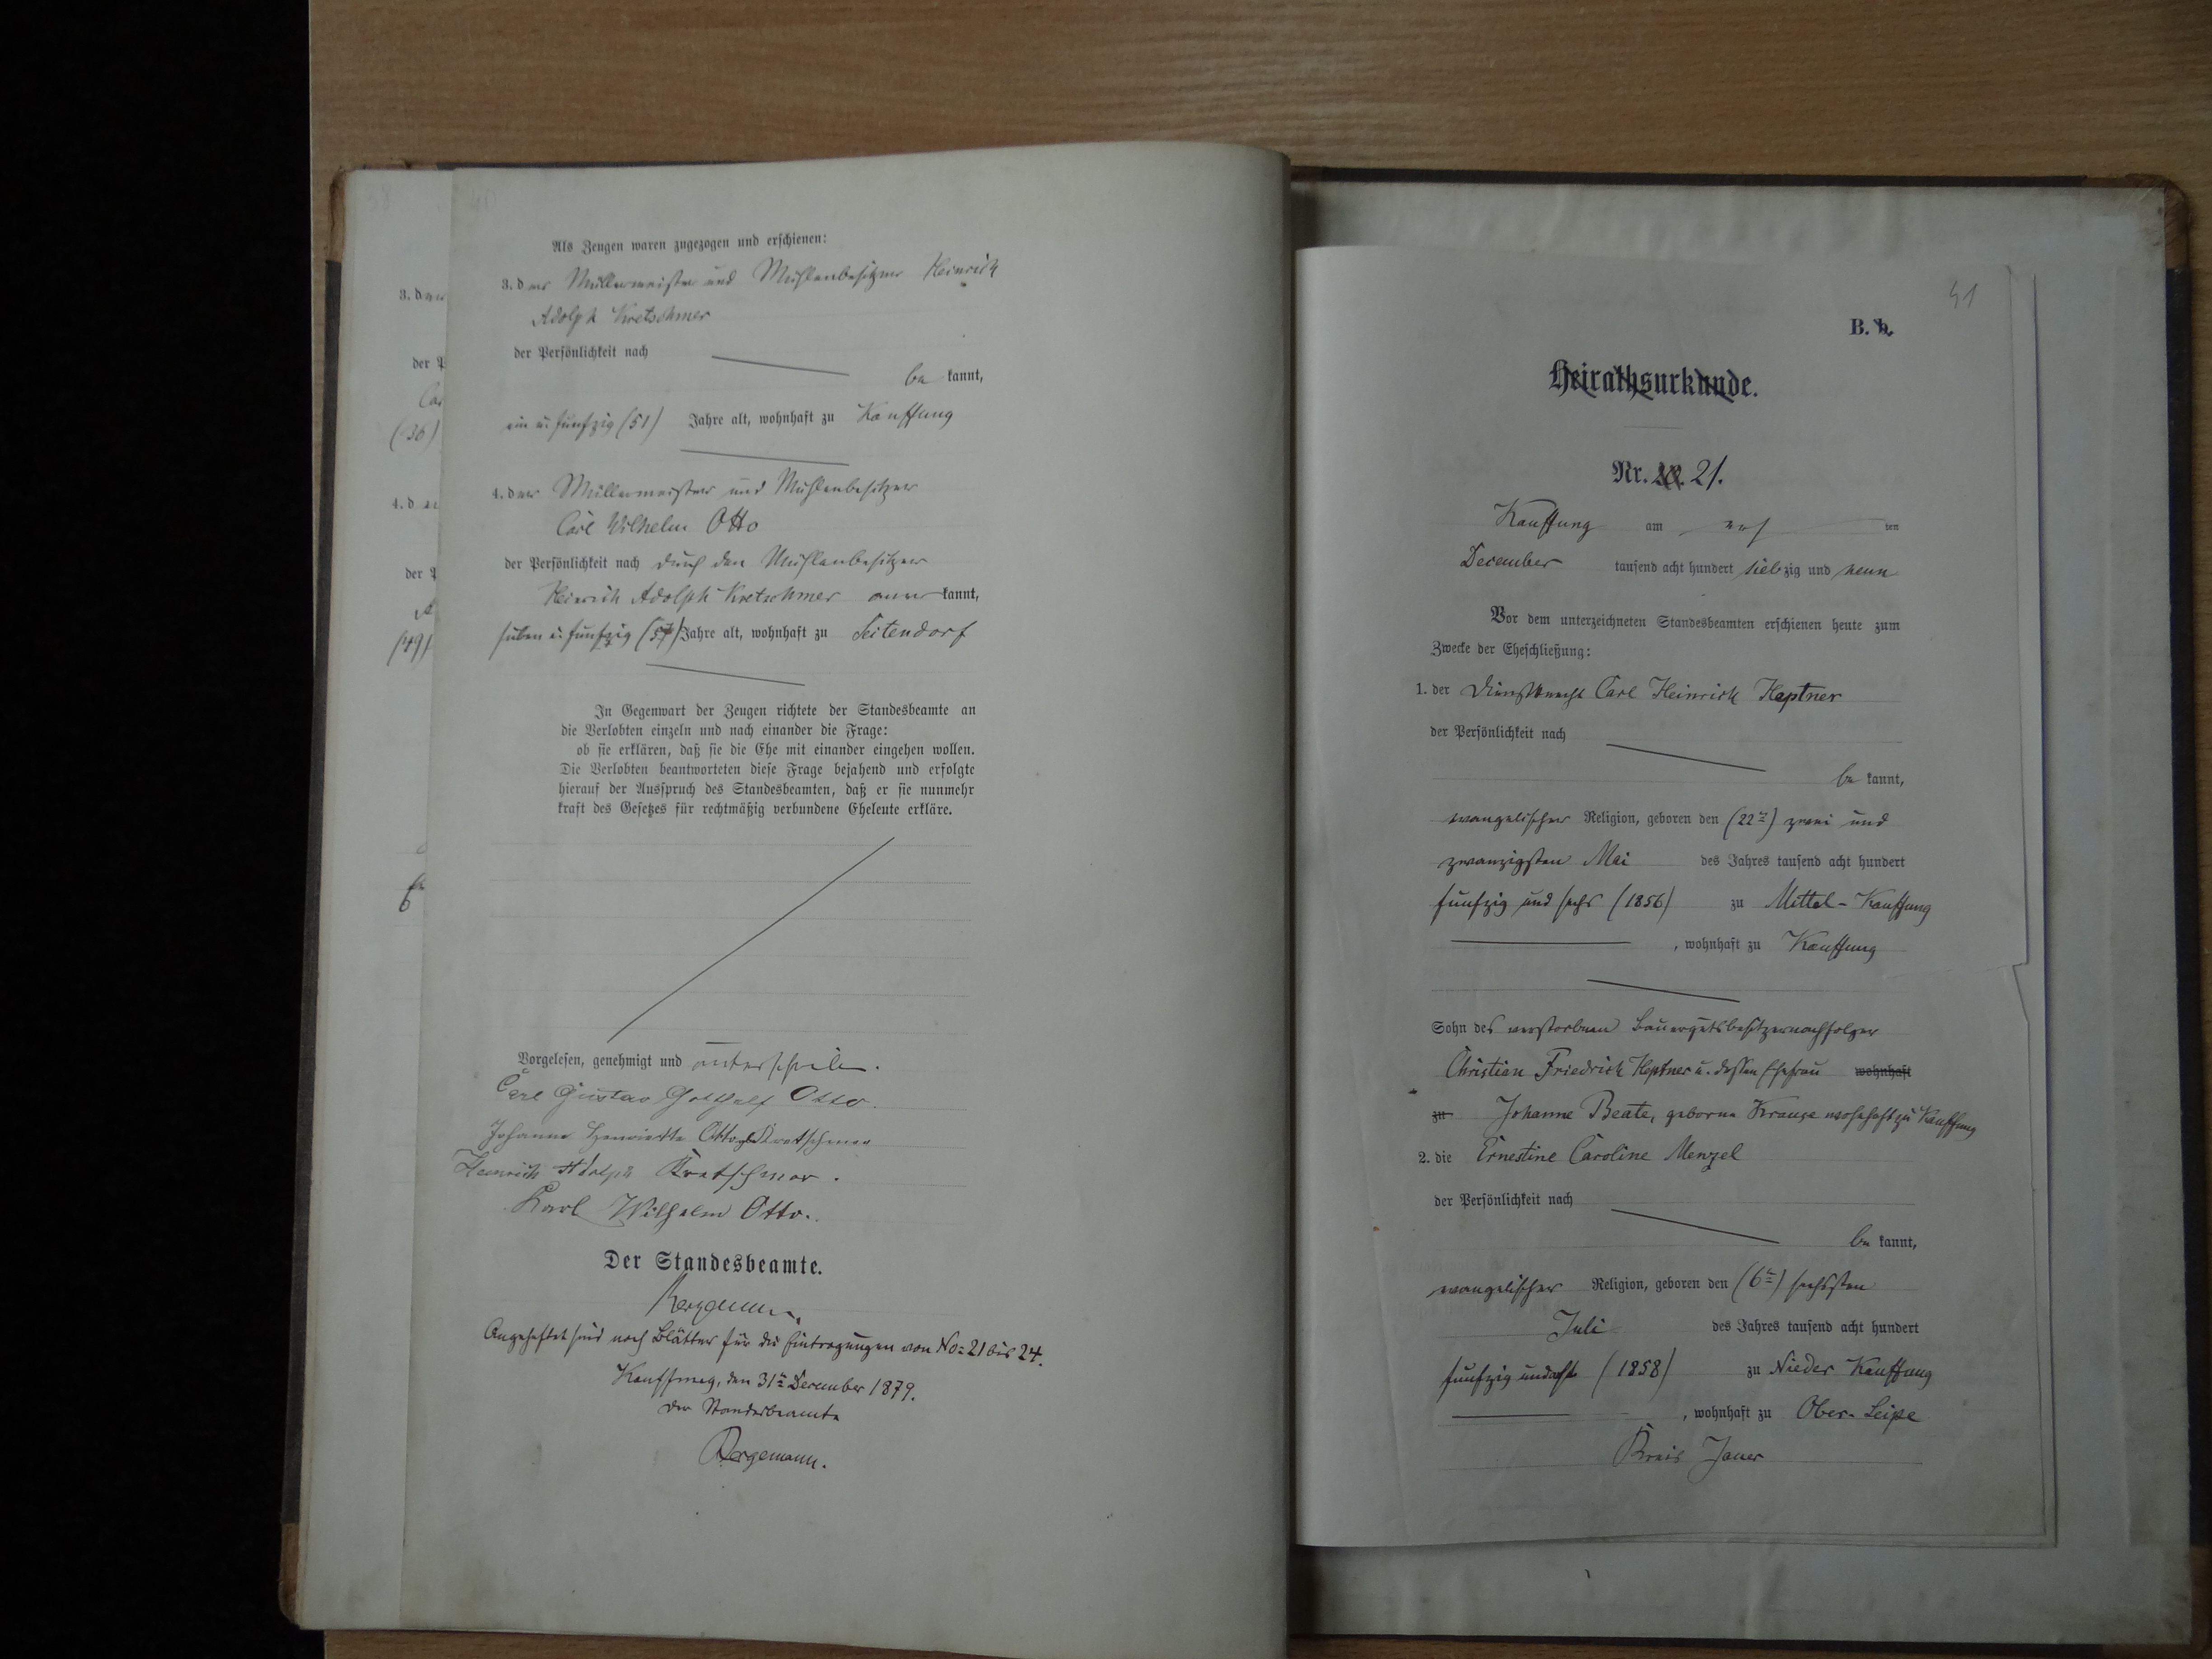 40
Als Zeugen waren zugezogen und erschienen:
3. der Müllermeister und Mühlenbesitzer Heinrich
Adolph Kretschmer
der Persönlichkeit nach
be kannt,
ein u. funfzig (51) Jahre alt, wohnhaft zu Kauffung
4. der Müllermeister und Mühlenbesitzer
Carl Wilhelm Otto
der Persönlichkeit nach durch den Mühlenbesitzer
Heinrich Adolph Kretschmer aner kannt,
sieben u. funfzig (57) Jahre alt, wohnhaft zu Seitendorf
In Gegenwart der Zeugen richtete der Standesbeamte an
die Verlobten einzeln und nach einander die Frage:
ob sie erklären, daß sie die Ehe mit einander eingehen wollen.
Die Verlobten beantworteten diese Frage bejahend und erfolgte
hierauf der Ausspruch des Standesbeamten, daß er sie nunmehr
kraft des Gesetzes für rechtmäßig verbundene Eheleute erkläre.
Vorgelesen, genehmigt und
Carl Gustav Gotthelf Otto.
Johanne Henriette Otto Kretschmer
Heinrich Adolph Kretschmer.
Karl Wilhelm Otto.
Der Standesbeamte.
Bergemann
Angeheftet sind noch Blätter für die Eintragungen von No= 21 bis 24.
Kauffung, den 31ten December 1879.
Der Standesbeamte
Bergemann.
3. der
der P
(36)
4. der
der P
(49)
41
B. b.
Heirathsurkunde.
Nr. 20. 21.
Kauffung am ten
December tausend acht hundert siebzig und neun
Vor dem unterzeichneten Standesbeamten erschienen heute zum
Zwecke der Eheschließung:
1. der Dienstknecht Carl Heinrich Heptner
der Persönlichkeit nach
be kannt,
evangelischer Religion, geboren den (22ten) zwei und
zwanzigsten Mai des Jahres tausend acht hundert
funfzig und sechs (1856) zu Mittel-Kauffung
, wohnhaft zu Kauffung
Sohn des verstorbnen Bauergutsbesitzernachfolger
Christian Friedrich Heptner u. dessen Ehefrau wohnhaft
zu Johanne Beate, geborne Krause wohnhaft zu Kauffung
2. die Ernestine Caroline Menzel
der Persönlichkeit nach
be kannt,
evangelischer Religion, geboren den (6ten) sechsten
Juli des Jahres tausend acht hundert
funfzig und acht (1858) zu Nieder Kauffung
, wohnhaft zu Ober-Leipe
Kreis Jauer